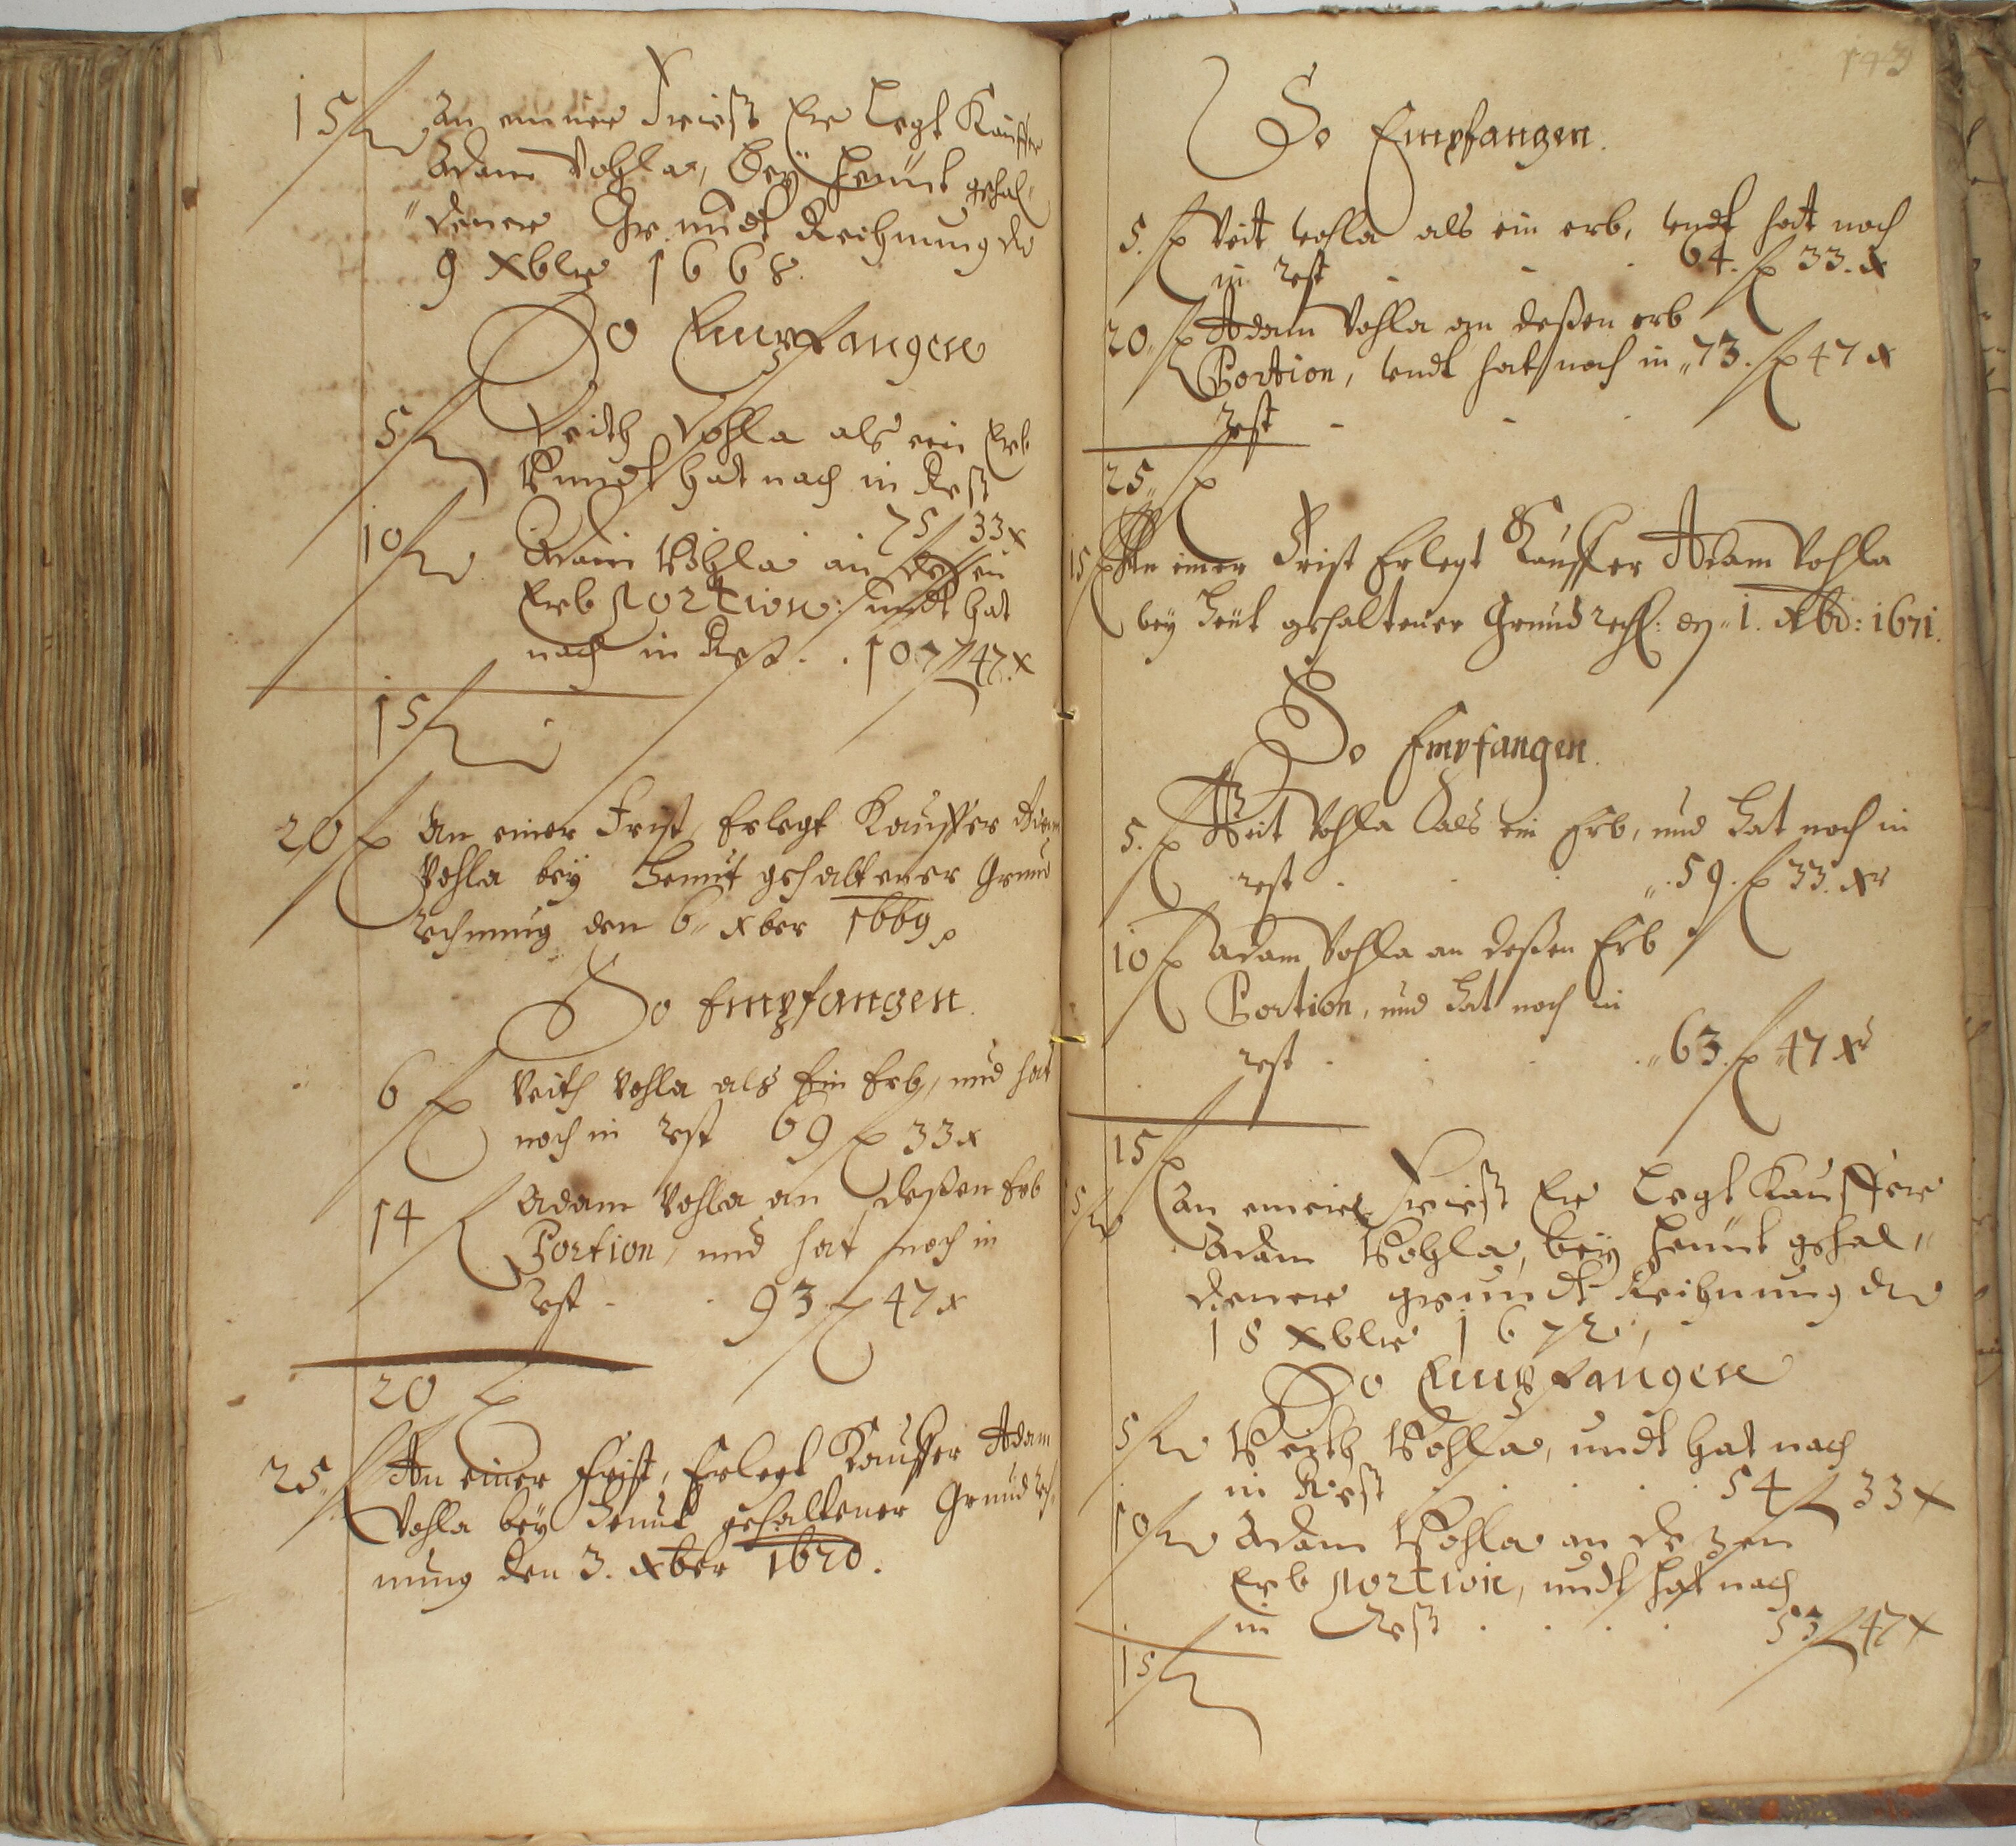 15 f An einner Frießt Er Legt Kauffer
Adam Vohla, beÿ heünt gehal„
„dener Grundt Rechnung de
9 Xbler 1668.
So Empfangen
5 f Veith Vohla als ein Erb
Vnndt hat nach in Rest
75 f 33 x
10 f Adam Vohla an deßen
Erb Portion undt hat
nach in Rest . . 107 f 47 x
15 f
20 f An einer Frist, Erlegt Kauffer Adam
Vohla beÿ heunt gehaltener Grund
rechnung den 6„ xber 1669
So Empfangen.
6 f Veith Vohla als Ein Erb, und hat
noch in rest 69 f 33 x
14 f Adam Vohla an deßen Erb
Portion, und hat noch in
rest . . 93 f 47 x
20 f
25„ f An einer Frist, Erlegt Kauffer Adam
Vohla beÿ heunt gehaltener Grundrech„
nung den 3. Xber 1670.
143
So Empfangen.
5. f Veit Vohla als ein erb, undt hat noch
in rest - - . 64. f 33. x
20„ f Adam Vohla an deßen erb
Portion, undt hat noch in „73. f 47 x
rest - - .
25„ f
15 f An einer Frist Erlegt Kauffer Adam Vohla
beÿ heut gehaltener Grundrech: dn„ 1. Xbr: 1671.
So Empfangen.
5. f Veit Vohla als ein Erb, und hat noch in
rest . . . „59. f 33. Xr
10 f Adam Vohla an deßen Erb
Portion, und hat noch in
rest . . . „63. f 47 Xr
15 f
15 f An einer Frießt Er Legt Kauffer
Adam Vohla, beÿ heünt gehal„
dener grundt Rechnung de
18 Xbler 1672,
So Empfangen
5 f Veith Vohla, undt hat nach
in Rest . . . . 54 f 33 x
10 f Adam Vohla an deßen
Erb Portion, undt hat nach
in Rest . . . . 53 f 47 x
15 f